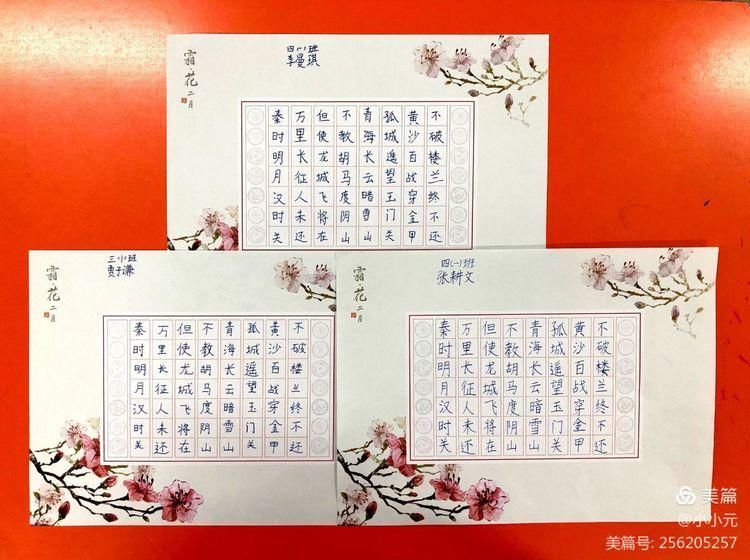 霜·花
二月
四(一)班
李曼琪
秦时明月汉时关
万里长征人未还
但使龙城飞将在
不教胡马度阴山
青海长云暗雪山
孤城遥望玉门关
黄沙百战穿金甲
不破楼兰终不还
霜·花
二月
秦时明月汉时关
万里长征人未还
但使龙城飞将在
不教胡马度阴山
青海长云暗雪山
孤城遥望玉门关
黄沙百战穿金甲
不破楼兰终不还
霜·花
二月
四(一)班
张耕文
秦时明月汉时关
万里长征人未还
但使龙城飞将在
不教胡马度阴山
青海长云暗雪山
孤城遥望玉门关
黄沙百战穿金甲
不破楼兰终不还
美篇
@小小元
美篇号: 256205257